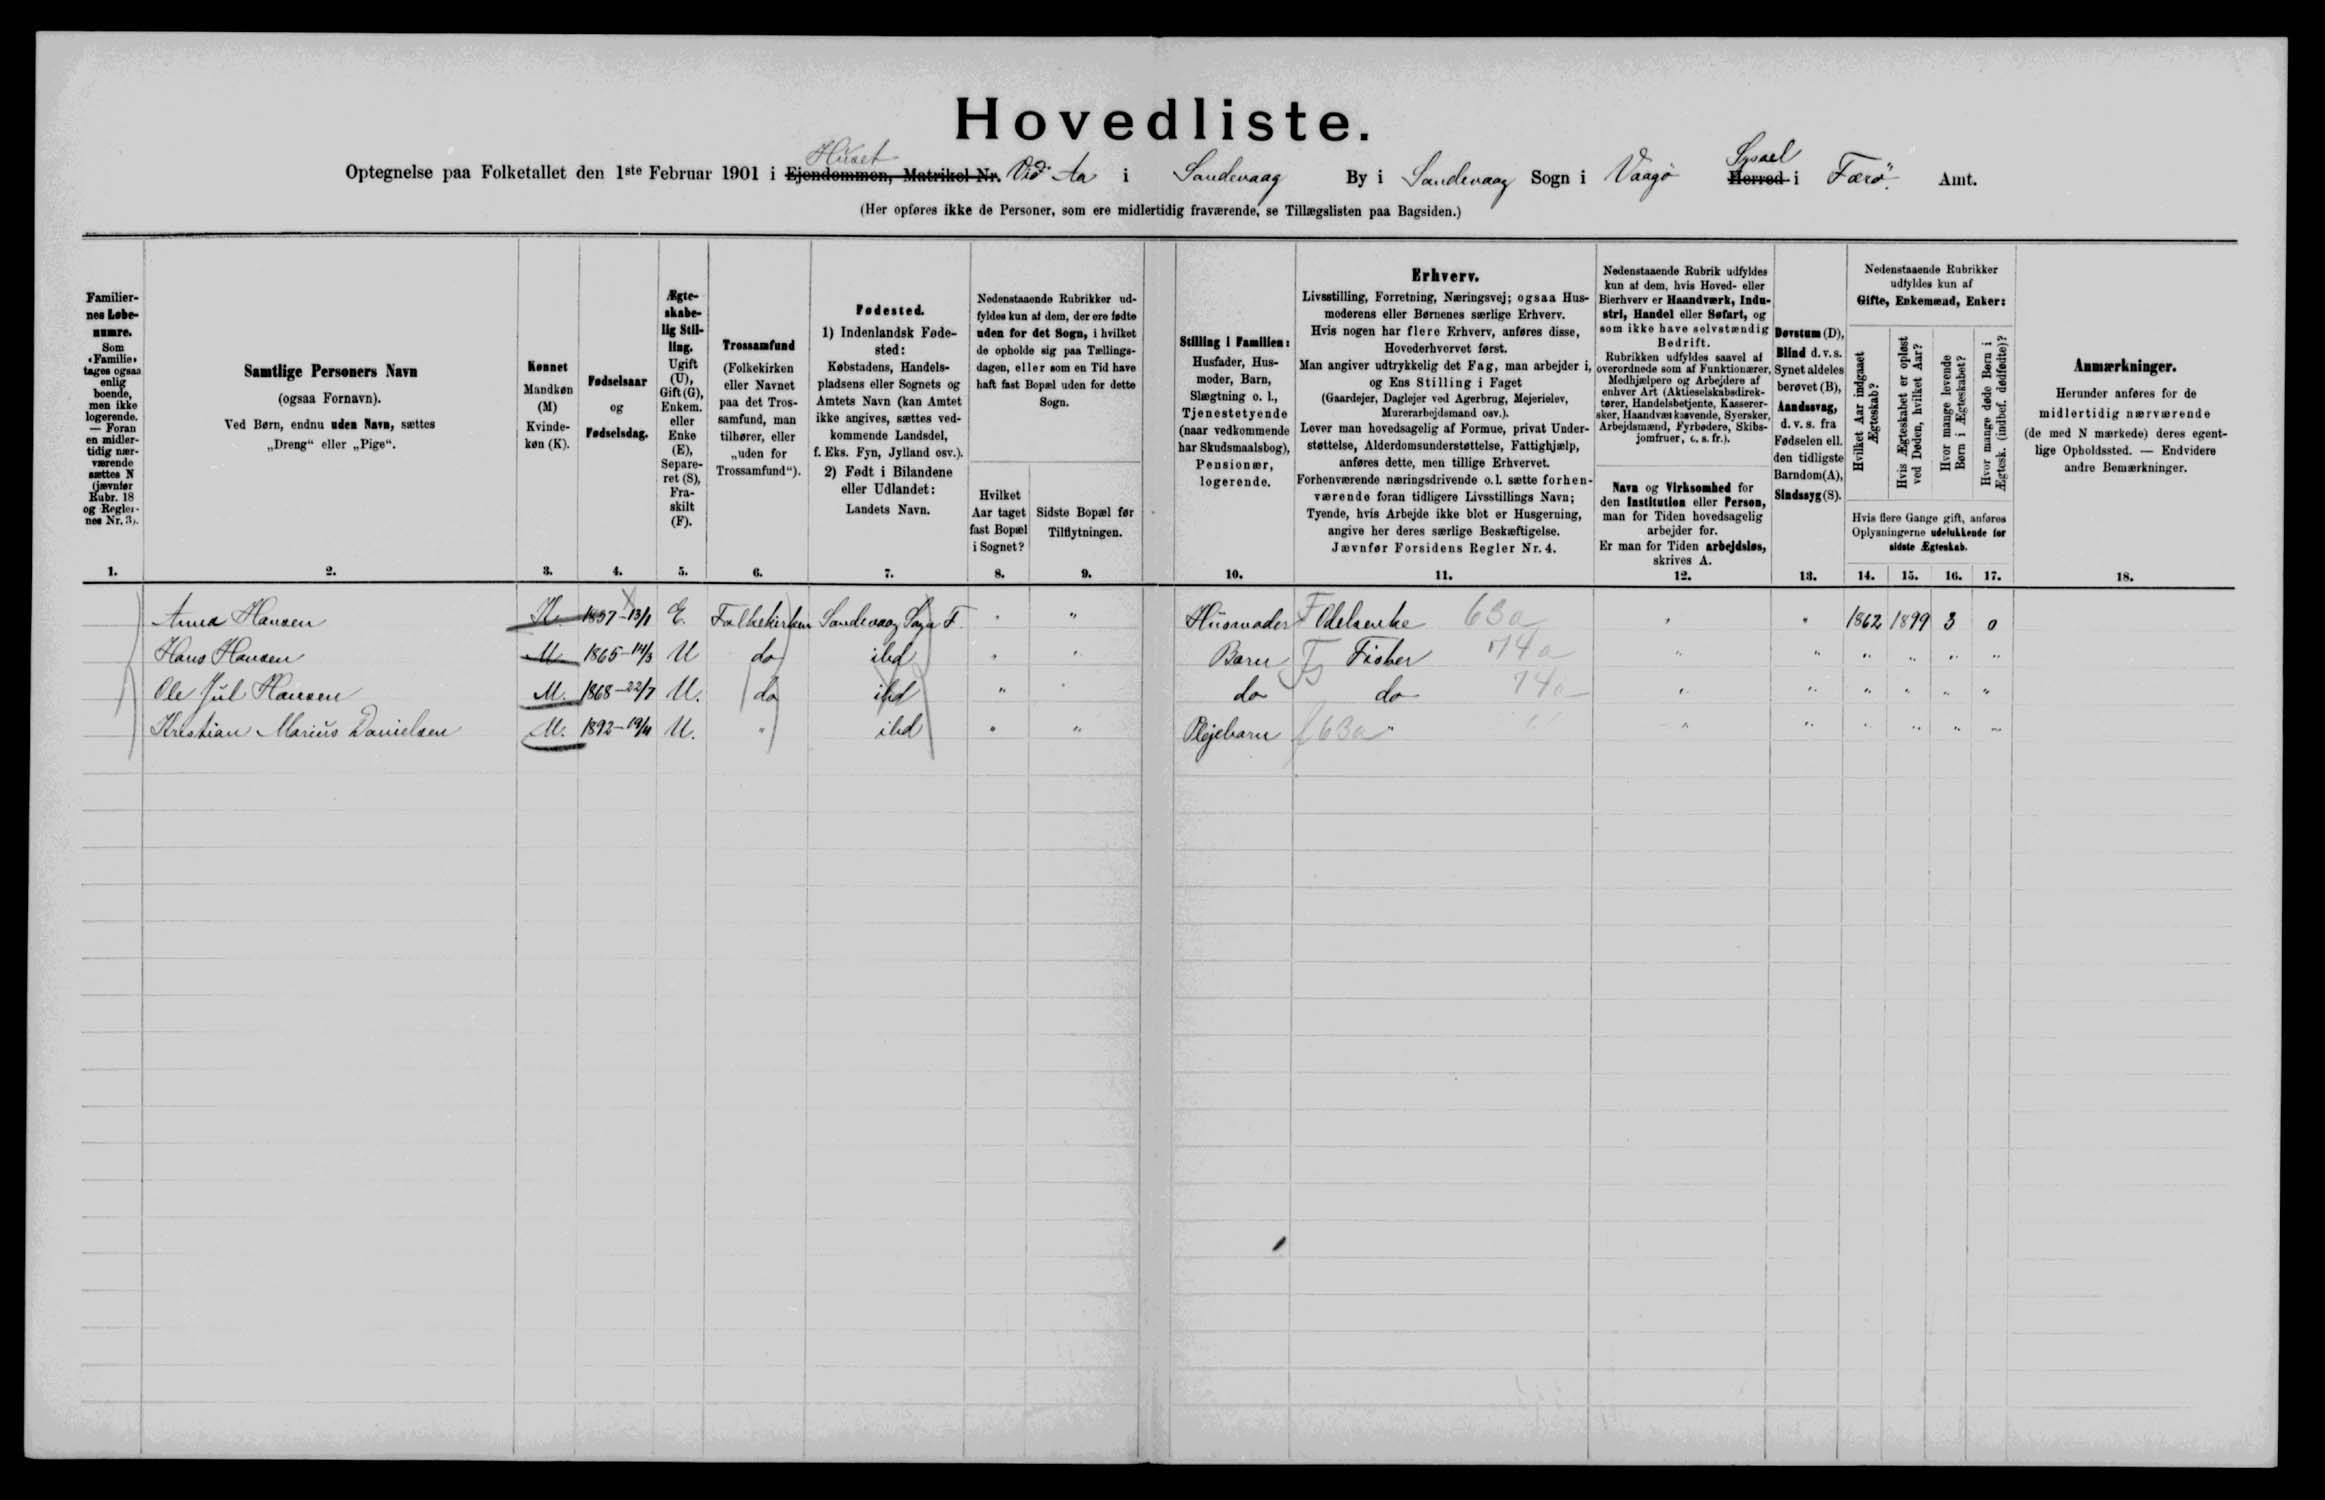 Hovedliste.
Huset Syssel
Optegnelse paa Folketallet den 1ste Februar 1901 i Ejendommen, Matrikel Nr. Við Aa i Sandevaag By i Sandevaag Sogn i Vaagø Herred i Færø Amt.
(Her opføres ikke de Personer, som ere midlertidig fraværende, se Tillægslisten paa Bagsiden.)
Familier-
nes Løbe-
numre.
Som
«Familie»
tages ogsaa
enlig
boende,
men ikke
logerende.
— Foran
en midler-
tidig nær-
værende
sættes N
(jævnfør
Rubr. 18
og Regler-
nes Nr. 3).
1.
Samtlige Personers Navn
(ogsaa Fornavn).
Ved Børn, endnu uden Navn, sættes
„Dreng“ eller „Pige“.
2.
Kønnet
Mandkøn
(M)
Kvinde-
køn (K).
3.
Fødselsaar
og
Fødselsdag.
4.
Ægte-
skabe-
lig Stil-
ling.
Ugift
(U),
Gift (G),
Enkem.
eller
Enke
(E),
Separe-
ret (S),
Fra-
skilt
(F).
5.
Trossamfund
(Folkekirken
eller Navnet
paa det Tros-
samfund, man
tilhører, eller
„uden for
Trossamfund“).
6.
Fødested.
1) Indenlandsk Føde-
sted:
Købstadens, Handels-
pladsens eller Sognets og
Amtets Navn (kan Amtet
ikke angives, sættes ved-
kommende Landsdel,
f. Eks. Fyn, Jylland osv.).
2) Født i Bilandene
eller Udlandet:
Landets Navn.
7.
Nedenstaaende Rubrikker ud-
fyldes kun af dem, der ere fødte
uden for det Sogn, i hvilket
de opholde sig paa Tællings-
dagen, eller som en Tid have
haft fast Bopæl uden for dette
Sogn.
Hvilket
Aar taget
fast Bopæl
i Sognet?
8.
Sidste Bopæl før
Tilflytningen.
9.
Stilling i Familien:
Husfader, Hus-
moder, Barn,
Slægtning o. l.,
Tjenestetyende
(naar vedkommende
har Skudsmaalsbog),
Pensionær,
logerende.
10.
Erhverv.
Livsstilling, Forretning, Næringsvej; ogsaa Hus-
moderens eller Børnenes særlige Erhverv.
Hvis nogen har flere Erhverv, anføres disse,
Hovederhvervet først.
Man angiver udtrykkelig det Fag, man arbejder i,
og Ens Stilling i Faget
(Gaardejer, Daglejer ved Agerbrug, Mejerielev,
Murerarbejdsmand osv.).
Lever man hovedsagelig af Formue, privat Under-
støttelse, Alderdomsunderstøttelse, Fattighjælp,
anføres dette, men tillige Erhvervet.
Forhenværende næringsdrivende o.l. sætte forhen-
værende foran tidligere Livsstillings Navn;
Tyende, hvis Arbejde ikke blot er Husgerning,
angive her deres særlige Beskæftigelse.
Jævnfør Forsidens Regler Nr. 4.
11.
Nedenstaaende Rubrik udfyldes
kun af dem, hvis Hoved- eller
Bierhverv er Haandværk, Indu-
stri, Handel eller Søfart, og
som ikke have selvstændig
Bedrift.
Rubrikken udfyldes saavel af
overordnede som af Funktionærer,
Medhjælpere og Arbejdere af
enhver Art (Aktieselskabsdirek-
tører, Handelsbetjente, Kasserer-
sker, Haandværkssvende, Syersker,
Arbejdsmænd, Fyrbødere, Skibs-
jomfruer, o. s. fr.).
Navn og Virksomhed for
den Institution eller Person,
man for Tiden hovedsagelig
arbejder for.
Er man for Tiden arbejdsløs,
skrives A.
12.
Døvstum (D),
Blind d. v. s.
Synet aldeles
berøvet (B),
Aandssvag,
d. v. s. fra
Fødselen ell.
den tidligste
Barndom(A),
Sindssyg(S).
13.
Nedenstaaende Rubrikker
udfyldes kun af
Gifte, Enkemænd, Enker:
Hvilket Aar indgaaet
Ægteskab?
Hvis Ægteskabet er opløst
ved Døden, hvilket Aar?
Hvor mange levende
Børn i Ægteskabet?
Hvor mange døde Børn i
Ægtesk. (indbef. dødfødte)?
Hvis flere Gange gift, anføres
Oplysningerne udelukkende for
sidste Ægteskab.
14. 15. 16. 17.
Anmærkninger.
Herunder anføres for de
midlertidig nærværende
(de med N mærkede) deres egent-
lige Opholdssted. — Endvidere
andre Bemærkninger.
18.
Anna Hansen K. 1837-13/1 E. Folkekirken Sandevaag Sogn F. " " Husmoder F Odelsenke 63a " " 1862 1899 3 0
Hans Hansen M 1865-14/3 U do ibd " " Barn Fisker 74a " " " " " "
Ole Jul Hansen M. 1868-22/7 U. do ibd " " do do 74a " " " " " "
Kristian Marius Danielsen M. 1892-19/11 U. " ibd " " Plejebarn f 63a " " " " " " "